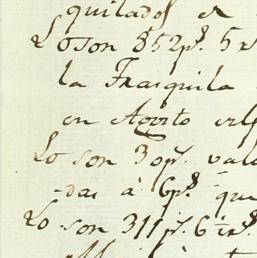 quilados en
Lo son 852 p.s 5 r
la Frasquila
en Agosto
Lo son 30 p.s vale
das à 6 p.s que
Lo son 311 p.s 6 ½ r.s